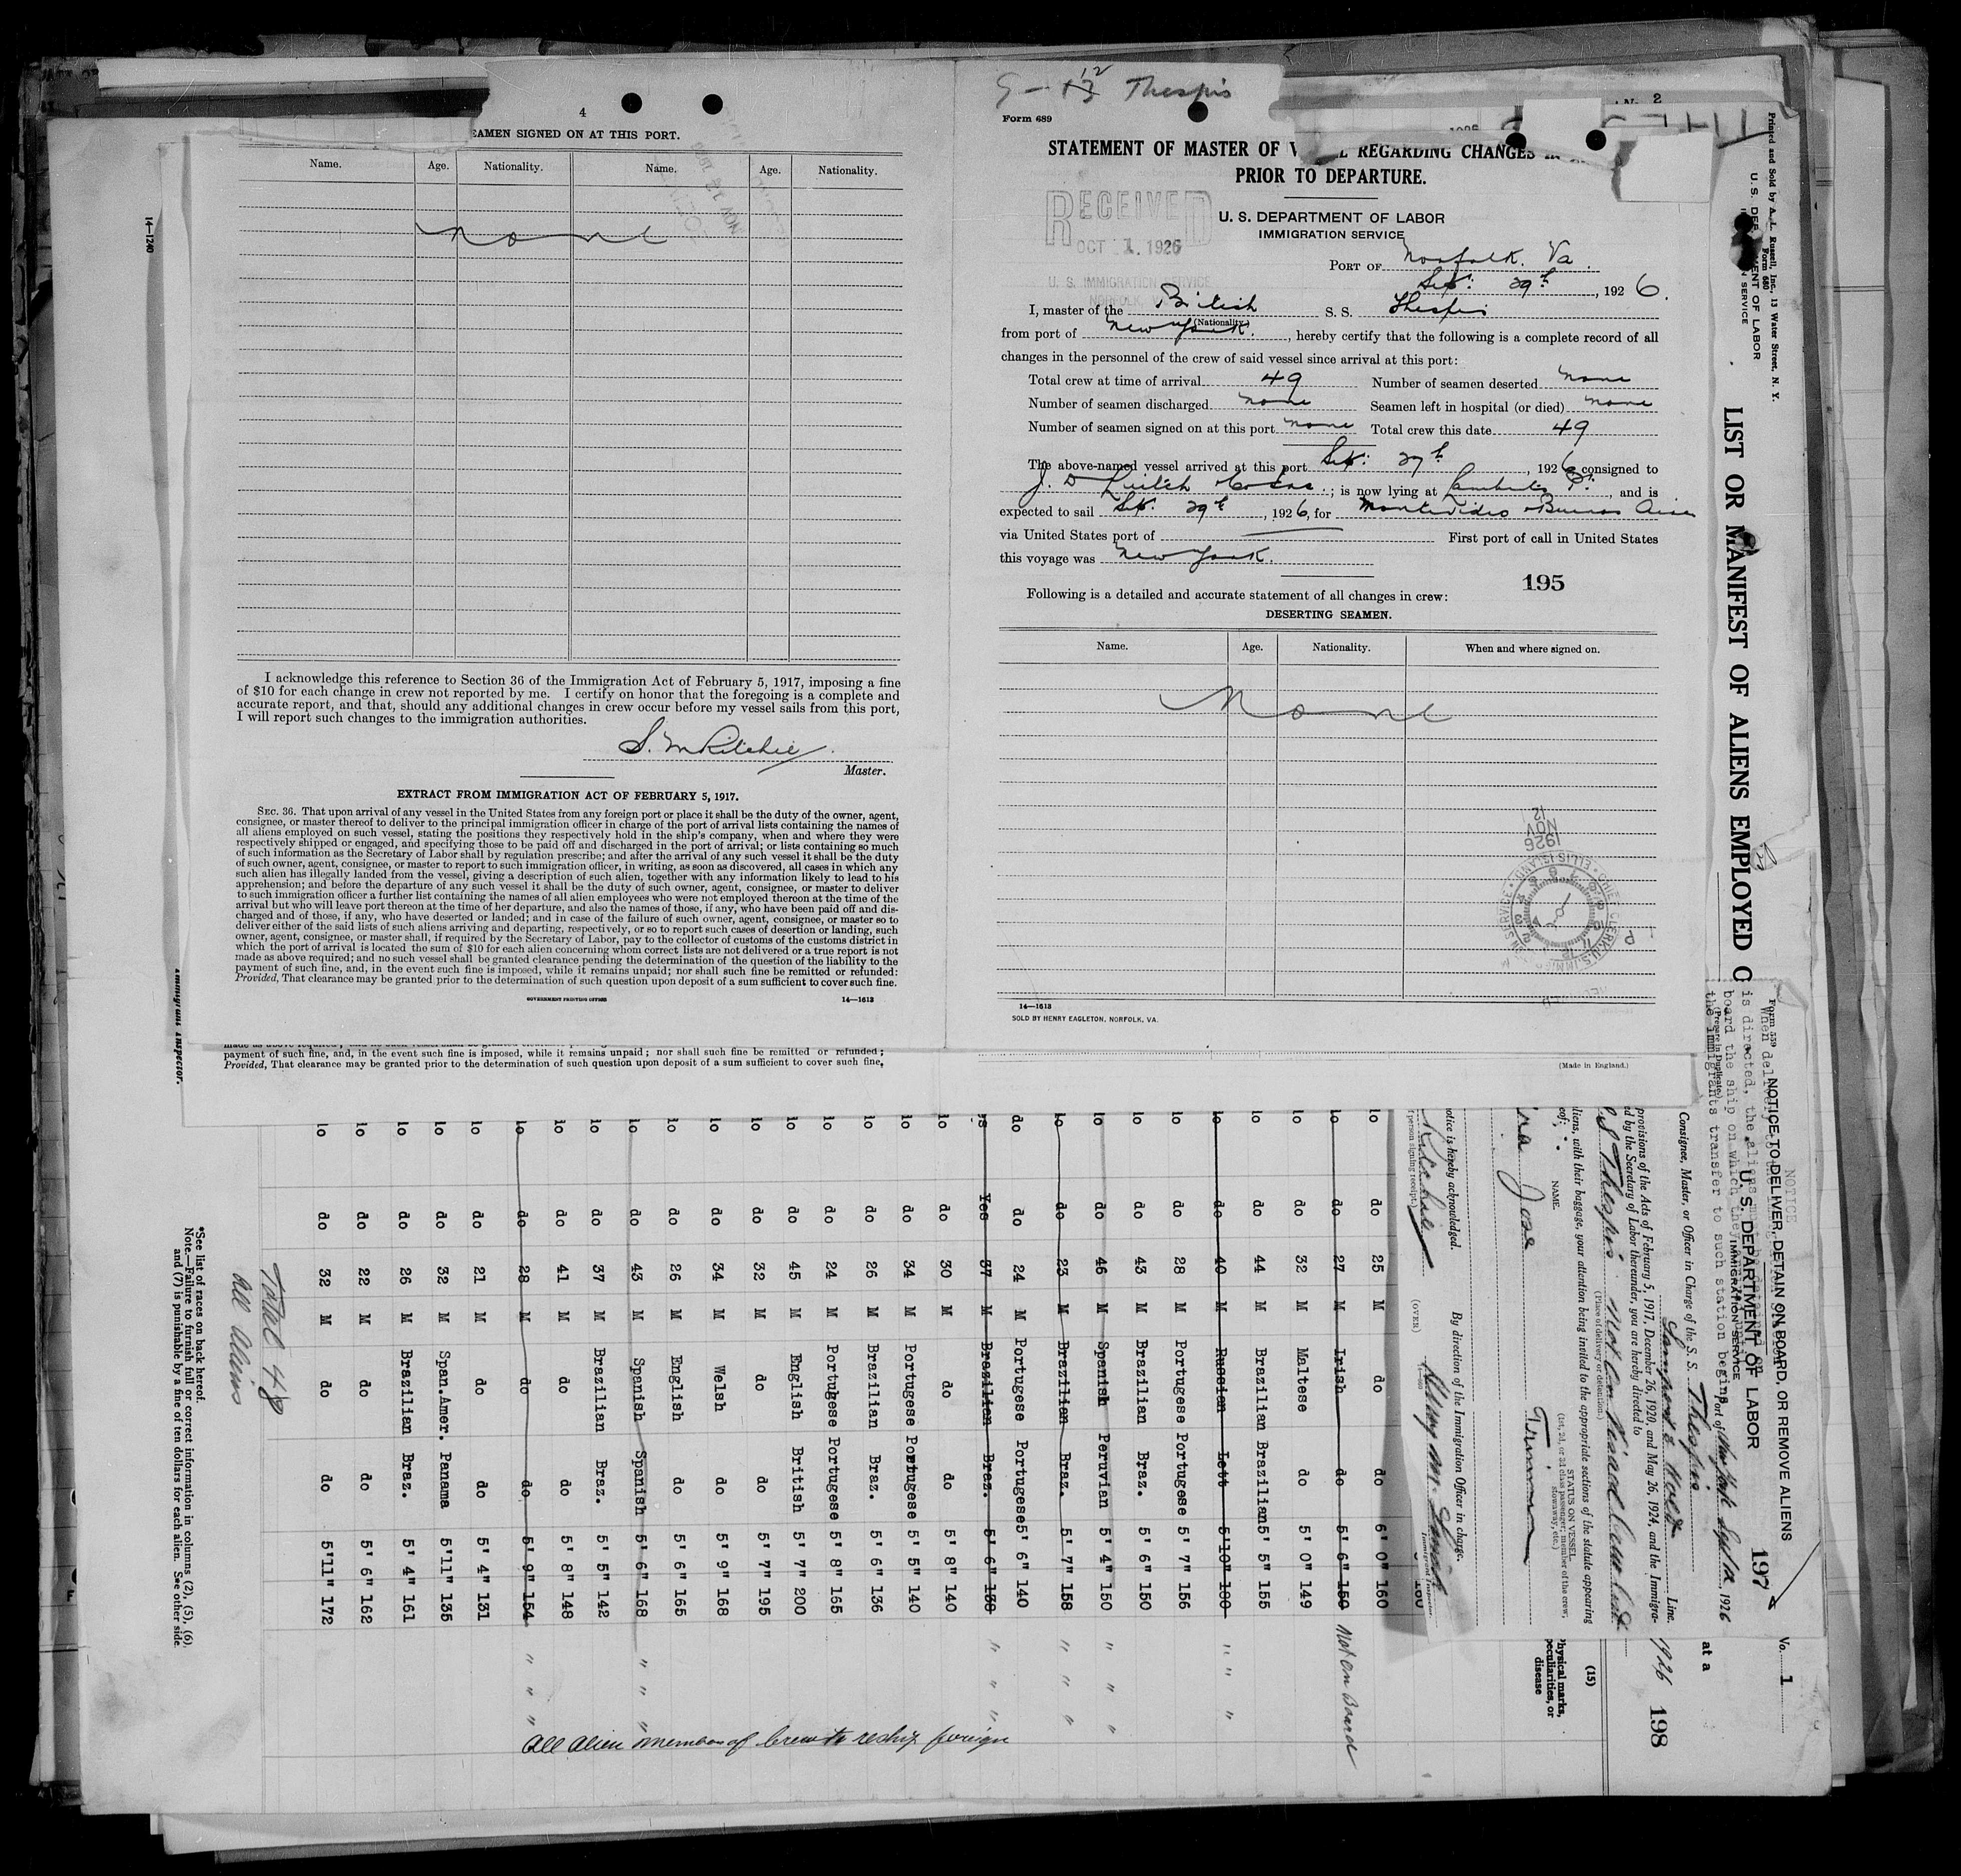 4
SEAMEN SIGNED ON AT THIS PORT.
Name. Age. Nationality. Name. Age. Nationality.
none
I acknowledge this reference to Section 36 of the Immigration Act of February 5, 1917, imposing a fine
of $10 for each change in crew not reported by me. I certify on honor that the foregoing is a complete and
accurate report, and that, should any additional changes in crew occur before my vessel sails from this port,
I will report such changes to the immigration authorities.
S. M Ritchie
Master.
EXTRACT FROM IMMIGRATION ACT OF FEBRUARY 5, 1917.
SEC. 36. That upon arrival of any vessel in the United States from any foreign port or place it shall be the duty of the owner, agent,
consignee, or master thereof to deliver to the principal immigration officer in charge of the port of arrival lists containing the names of
all aliens employed on such vessel, stating the positions they respectively hold in the ship's company, when and where they were
respectively shipped or engaged, and specifying those to be paid off and discharged in the port of arrival; or lists containing so much
of such information as the Secretary of Labor shall by regulation prescribe; and after the arrival of any such vessel it shall be the duty
of such owner, agent, consignee, or master to report to such immigration officer, in writing, as soon as discovered, all cases in which any
such alien has illegally landed from the vessel, giving a description of such alien, together with any information likely to lead to his
apprehension; and before the departure of any such vessel it shall be the duty of such owner, agent, consignee, or master to deliver
to such immigration officer a further list containing the names of all alien employees who were not employed thereon at the time of the
arrival but who will leave port thereon at the time of her departure, and also the names of those, if any, who have been paid off and dis-
charged and of those, if any, who have deserted or landed; and in case of the failure of such owner, agent, consignee, or master so to
deliver either of the said lists of such aliens arriving and departing, respectively, or so to report such cases of desertion or landing, such
owner, agent, consignee, or master shall, if required by the Secretary of Labor, pay to the collector of customs of the customs district in
which the port of arrival is located the sum of $10 for each alien concerning whom correct lists are not delivered or a true report is not
made as above required; and no such vessel shall be granted clearance pending the determination of the question of the liability to the
payment of such fine, and, in the event such fine is imposed, while it remains unpaid; nor shall such fine be remitted or refunded:
Provided, That clearance may be granted prior to the determination of such question upon deposit of a sum sufficient to cover such fine.
GOVERNMENT PRINTING OFFICE 14—1613
payment of such fine, and, in the event such fine is imposed, while it remains unpaid; nor shall such fine be remitted or refunded;
Provided, That clearance may be granted prior to the determination of such question upon deposit of a sum sufficient to cover such fine.
14—1240
Immigrant Inspector.
Thespis
Form 689
STATEMENT OF MASTER OF REGARDING CHANGES
PRIOR TO DEPARTURE.
U. S. DEPARTMENT OF LABOR
IMMIGRATION SERVICE
RECEIVED
OCT 1. 1926
U. S. IMMIGRATION SERVICE
NORFOLK
PORT OF Norfolk. Va.
Sept: 29th, 1926.
I, master of the British S. S. Thespis
(Nationality)
from port of New York., hereby certify that the following is a complete record of all
changes in the personnel of the crew of said vessel since arrival at this port:
Total crew at time of arrival 49 Number of seamen deserted none
Number of seamen discharged none Seamen left in hospital (or died) none
Number of seamen signed on at this port none Total crew this date 49
The above-named vessel arrived at this port Sept: 27th, 1926 consigned to
J. D ; is now lying at Lamberts Pt., and is
expected to sail Sept. 29th, 1926, for Montevideo Buenos Aires
via United States port of First port of call in United States
this voyage was New York.
195
Following is a detailed and accurate statement of all changes in crew:
DESERTING SEAMEN.
Name. Age. Nationality. When and where signed on.
None
1926
NOV
12
14—1613
SOLD BY HENRY EAGLETON, NORFOLK, VA.
(Made in England.)
2
Printed and Sold by A. L. Russell, Inc., 13 Water Street, N. Y.
Form 680
LIST OR MANIFEST OF ALIENS EMPLOYED O
Form 559
(Prepare in Duplicate)
NOTICE TO DELIVER, DETAIN ON BOARD, OR REMOVE ALIENS
U. S. DEPARTMENT OF LABOR
IMMIGRATION SERVICE
197
board the ship on which the
the immigrants transfer to such station begins
Port of New York Sept , 1926
Lamport & Holt Line.
Consignee, Master, or Officer in Charge of the S. S. Thespis
provisions of the Acts of February 5, 1917, December 26, 1920, and May 26, 1924, and the Immigra-
ed by the Secretary of Labor thereunder, you are hereby directed to
S S Thespis
(Place of delivery or detention.)
aliens, with their baggage, your attention being invited to the appropriate sections of the statute appearing
NAME. STATUS ON VESSEL
(1st, 2d, or 3d class passenger; member of the crew,
stowaway, etc.)
Jose Trimmer
By direction of the Immigration Officer in charge.
notice is hereby acknowledged.
Ritchie
(OVER)
Immigrant Inspector.
No. 1
at a
1926
198
(15)
Physical marks,
peculiarities, or
disease
do 25 M do do 6' 0" 160
do 27 M Irish do 5' 6" 150 Not on Board
do 32 M Maltese do 5' 0" 149
do 44 M Brazilian Brazilian 5' 5" 155
do 40 M Russian Lett 5'10" 190 " " "
do 28 M Portugese Portugese 5' 7" 156
do 43 M Brazilian Braz. 5' 6" 150
do 46 M Spanish Peruvian 5' 4" 150 " "
do 23 M Brazilian Braz. 5' 7" 158 " " "
do 24 M Portugese Portugese 5' 6" 140
Yes 37 M Brazilian Braz. 5' 6" 130 " " "
do 30 M do do 5' 8" 140
do 34 M Portugese Portugese 5' 5" 140
do 26 M Brazilian Braz. 5' 6" 136
do 24 M Portugese Portugese 5' 8" 165
do 45 M English British 5' 7" 200
do 32 M do do 5' 7" 195
do 34 M Welsh do 5' 9" 168
do 26 M English do 5' 6" 165
do 43 M Spanish Spanish 5' 6" 168 " " "
do 37 M Brazilian Braz. 5' 5" 142
do 41 M do do 5' 8" 148
do 28 M do do 5' 9" 154 " " "
do 21 M do do 5' 4" 131
do 32 M Span.Amer. Panama 5'11" 135
do 26 M Brazilian Braz. 5' 4" 161
do 22 M do do 5' 6" 162
do 32 M do do 5'11" 172
All alien members of crew to reship foreign
Total 48
All aliens
*See list of races on back hereof.
Note.—Failure to furnish full or correct information in columns (2), (5), (6),
and (7) is punishable by a fine of ten dollars for each alien. See other side.